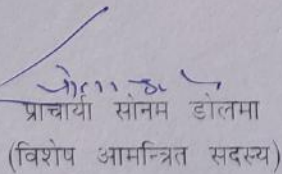 प्राचार्या सोनम डोलमा
(विशेष आमन्त्रित सदस्य)